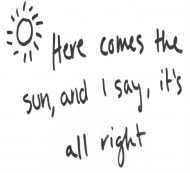 Here comes the
sun, and I say, it's
all right